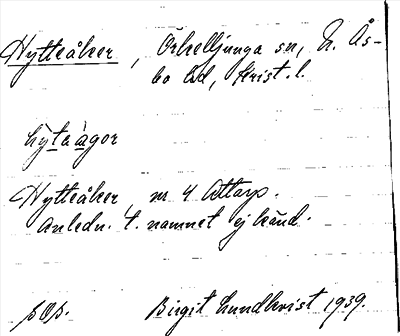 Hytteåker, Örkelljunga sn, N. Ås-
bo hd, Krist. l.
hy̲ta å̲gor
Hytteåker nr 4 Attarp.
Anledn. t. namnet ej känd.
Birgit Lundkvist 1939.